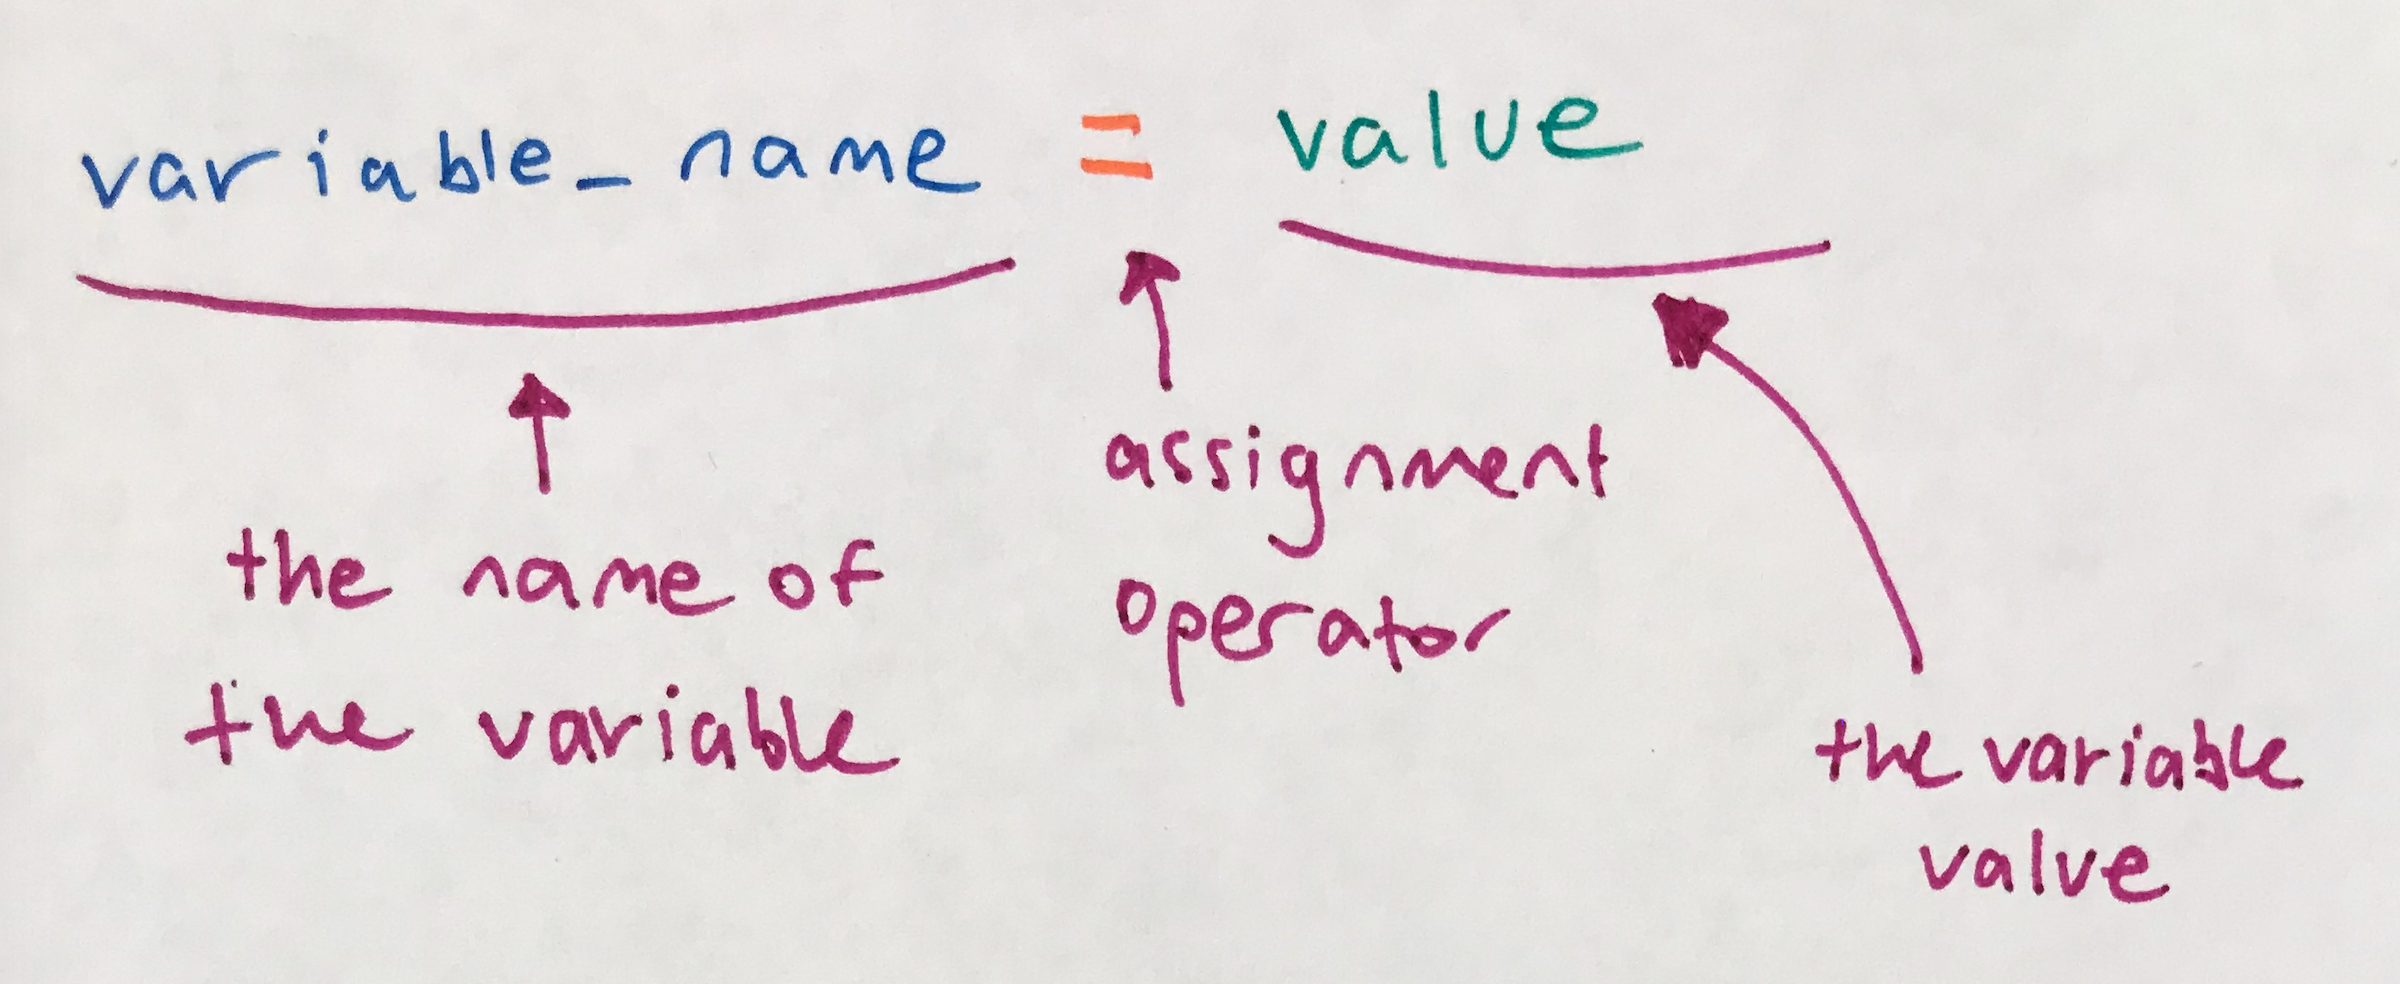 variable_name = value
the name of
the variable
assignment
operator
the variable
value